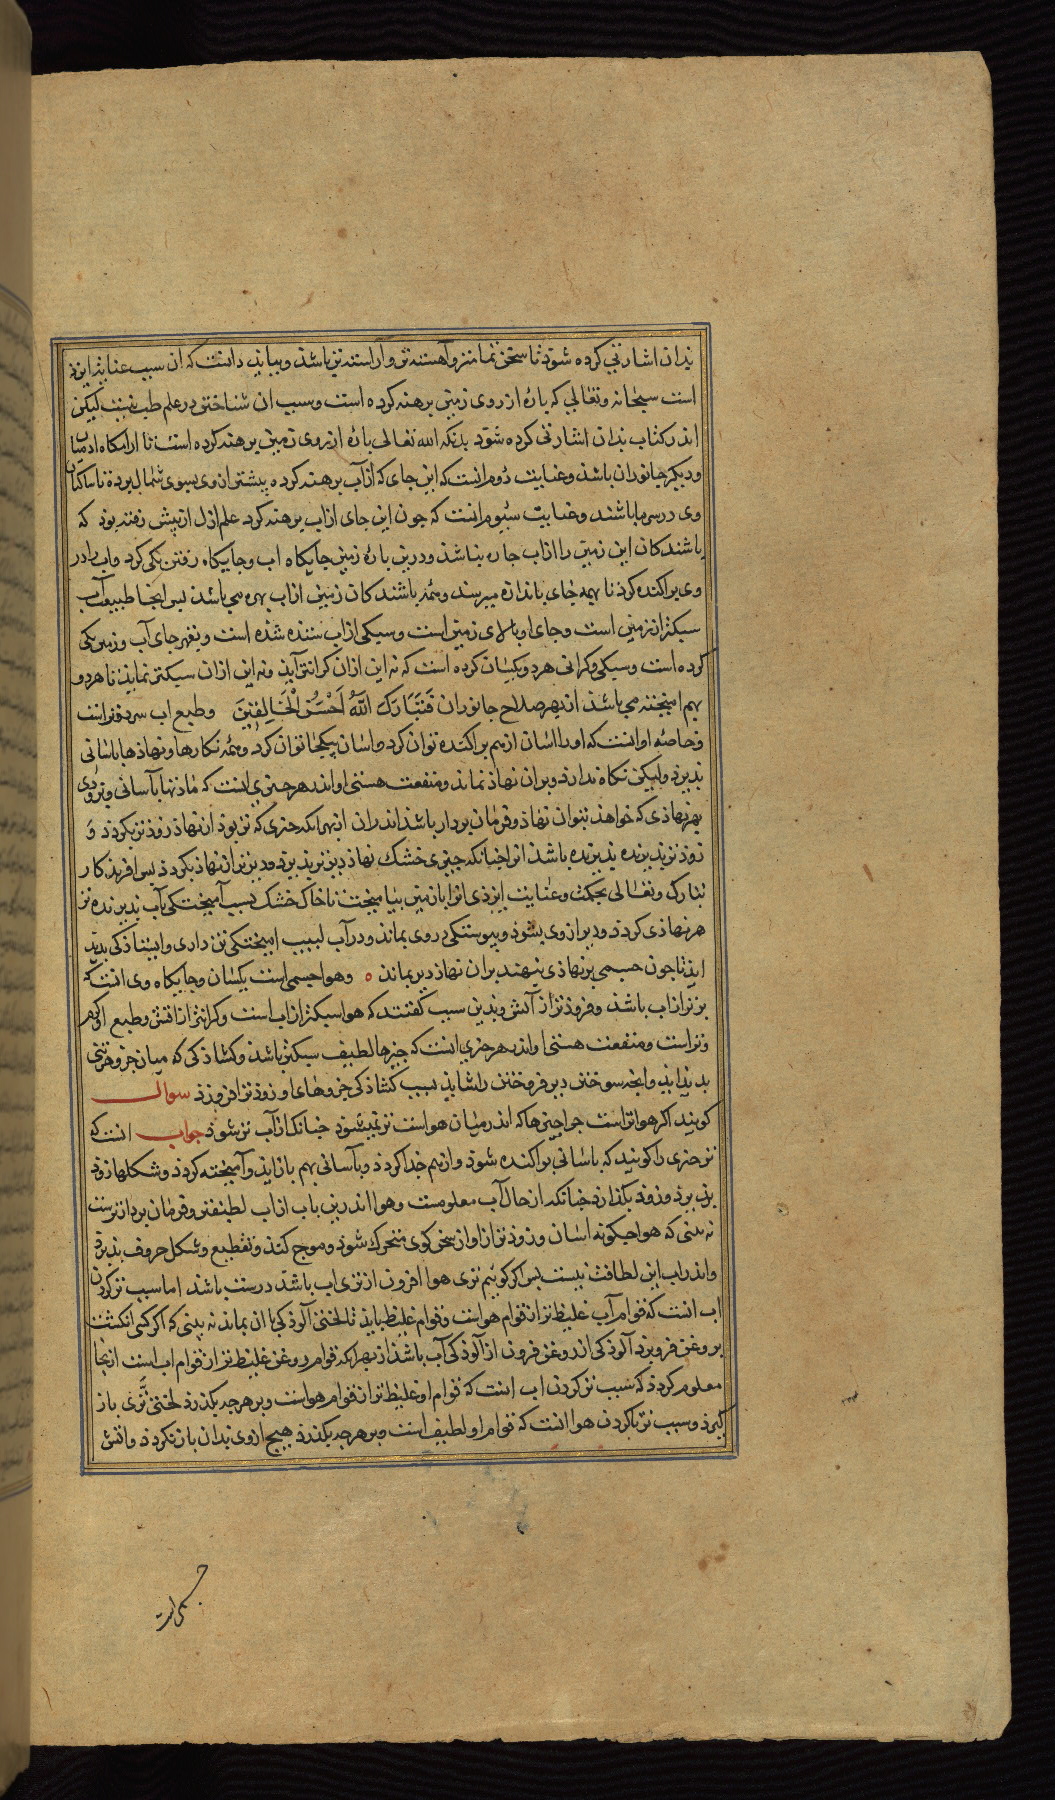 بدان اشارتی کرده شوذ تا سخن تمامتر و آراسته تر باشذ و بباید دانست که ان سبب عنایت ایزذ
است سبحانه وتعالی که پارهٔ از روی زمین برهنه کرده است وسبب ان شناختن در علم طب نیست لیکن
اندر کتاب بدان اشارتی کرده شوذ بدانکه الله تعالی پارهٔ از روی زمین برهنه کرده است تا ارامکاه ادمیان
ودیکر جانوران باشذ وعنایت دوم انست که این جای که از آب برهنه کرده بیشتر از وی بسوی شمال برده تا ساکنان
وی در سرما باشند وعنایت سیوم انست که جون این جای از اب برهنه کرد علم ازل از پیش رفته بوذ که
باشندکان این زمین را از اب جاره نباشذ ودرین پارهٔ زمین جایکاه اب وجایکاه رفتن یکی کرد واب را در
وی پراکنده کرد تا بهمه جای باندازه میرسد وهمه باشندکان زمین از اب بهره می یابند پس اینجا طبیعت آب
سبکتر از زمین است وجای او بالای زمین است وسبکی از اب ستده شذه است وبقهر جای آب وزمین یکی
کرده است وسبکی وکرانی هر دو یکسان کرده است که نه این ازان کرانتر آید ونه این ازان سبکتر نماید تا هر دو
بهم امیخته می باشذ از بهر صلاح جانوران فَتَبَارَكَ اللّٰهُ اَحْسَنُ الْخَالِقِينَ وطبع اب سرد وتر است
وخاصهٔ او انست که او را اسان از هم پراکنده توان کرد واسان بیکجا توان کرد وهمه نکارها ونهاذها باسانی
پذیرد ولیکن نکاه ندارد وبران نهاذ نماند ومنفعت هستی او اندر هر جیزی انست که مادتها بآسانی وبزودی
بهر نهاذی که خواهند بتوان نهاذ وفرمان بردار باشذ اندران از بهر انکه جیزی که تر بود از نهاذ زوذتر بکردد و
زوذتر پذیرنده باشذ انرا جنانکه جیزی خشک نهاذ دیرتر پذیرد ودیرتر از نهاذ بکردد پس افریذکار
تبارک وتعالی بحکمت وعنایت ایزدی انرا با زمین بیامیخت تا خاک خشک بسبب آمیختکی آب پذیرنده تر
هر نهاذی کردد ودیر از وی بشوذ وپیوستکی در وی بماند ودر آب بسبب امیختکی تن داری وایستاذکی پدید
اید تا جون جسمی بر نهاذی بنهند بران نهاذ دیر بماند ه وهوا جسمی است یکسان وجایکاه وی انست که
برتر از اب باشذ وفروذتر از آتش وبدین سبب کفتند که هوا سبکتر از اب است وکرانتر از اتش وطبع او کرم
وتر است ومنفعت هستی او اندر هر جیزی انست که جیزها لطیف وسبکتر باشذ وکشاذکی که میان جزوهاء تنی
بدید اید وانجه سوختن دیر فروختن را شاید بسبب کشاذکی جزوهای او زوذتر افروزد سوال
کویند اکر هوا تر است جرا جیزها که اندر میان هواست تر نمیشوذ جنانک از آب تر شوذ جواب انست که
تر جیزی را کویند که باسانی پراکنده شوذ واز هم جدا کردذ وبآسانی بهم باز اید وآمیخته کردذ وشکلها زوذ
پذیرد وزوذ بکذارد جنانکه از حال آب معلومست وهوا اندرین باب از اب لطیفتر وفرمان بردارترست
نه بینی که هوا جکونه اسان وزوذتر از اواز سخن کوی متحرک شوذ وموج کند وتقطیع وشکل حروف پذیرد
واندر اب این لطافت نیست پس اکر کوئیم تری هوا افزون از تری اب باشذ درست باشذ اما سبب تر کردن
اب انست که قوام آب غلیظ تر از قوام هواست وقوام غلیظ باید تا لختی آلوذکی با ان بماند نه بینی که اکر کسی انکشت
بروغن فرو برد آلوذکی از روغن فزون از آلوذکی آب باشذ از بهر انکه قوام روغن غلیظ تر از قوام اب است ازینجا
معلوم کردذ که سبب تر کردن اب انست که قوام او غلیظ تر از قوام هواست وبر هرجه بکذرد لختی تَری باز
کیرذ وسبب تر ناکردن هوا انست که قوام او لطیف است وبر هرجه بکذرد هیج از وی بدان باز نکردذ واتش